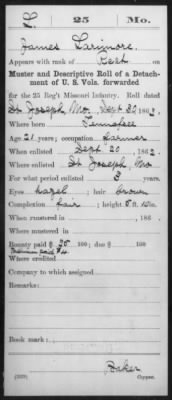 L. 25 Mo.
James Larimore,
Appears with rank of Rect on
Muster and Descriptive Roll of a Detachment
of U. S. Vols. forwarded
for the 25 Reg't Missouri Infantry. Roll dated
St. Joseph, Mo. Sept 22, 1862.
Where born Tennessee
Age 21 years; occupation Farmer
When enlisted Sept 20, 1862.
Where enlisted St. Joseph, Mo
For what period enlisted 3 years.
Eyes hazel; hair brown
Complexion fair; height 5 ft. in.
When mustered in , 186 .
Where mustered in
Bounty paid $ 25 100; due $ 100
Premium paid $4
Where credited
Company to which assigned
Remarks:
Book mark:
Baker
(339) Copyist.